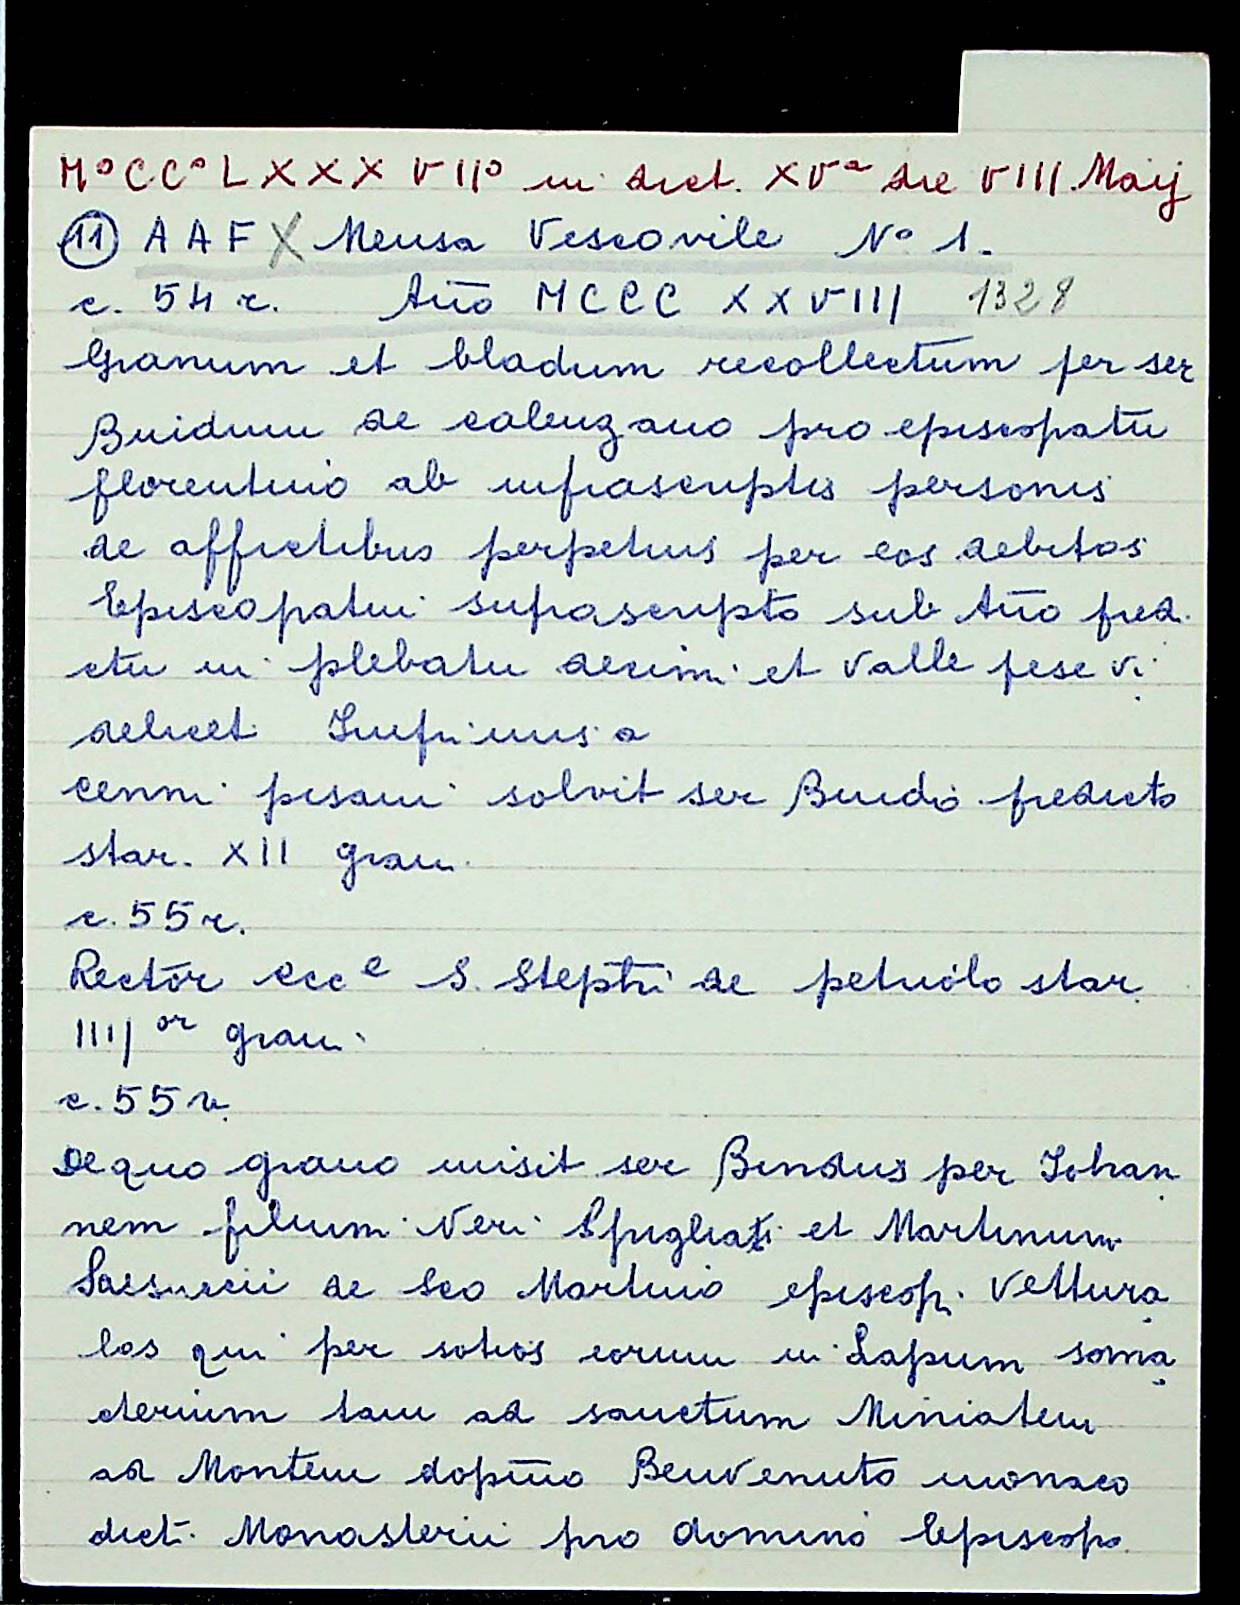 M° CC° LXXX VII° in dict. XVª die VIII Maij
11 AAF X Mensa Vescovile N° 1.
c. 54 r. Año MCCC XXVIII 1328
Granum et bladum recollectum per ser
Buidum de calenzano pro episcopatu
florentino ab infrascriptis personis
de affictibus perpetuis per eos debitos
Episcopatui suprascripto sub Año pred.
ctu in plebatu decimi et valle pese vi
delicet Imprimis a
cenni pisani solvit ser Bindo predicto
star. XII gran.
c. 55 r.
Rector ecc e S. Steph̃i de petriolo star.
IIIJ or gran.
c. 55 v.
De quo grano misit ser Bindus per Iohan
nem filium Neri Spigliati et Martinum
de Sco Martino episcop. Vettura
los qui per sotios eorum in Lapum soma
derium tam ad sanctum Miniatem
ad Montem dopño Benvenuto monaco
dict. Monasterii pro domino Episcopo.